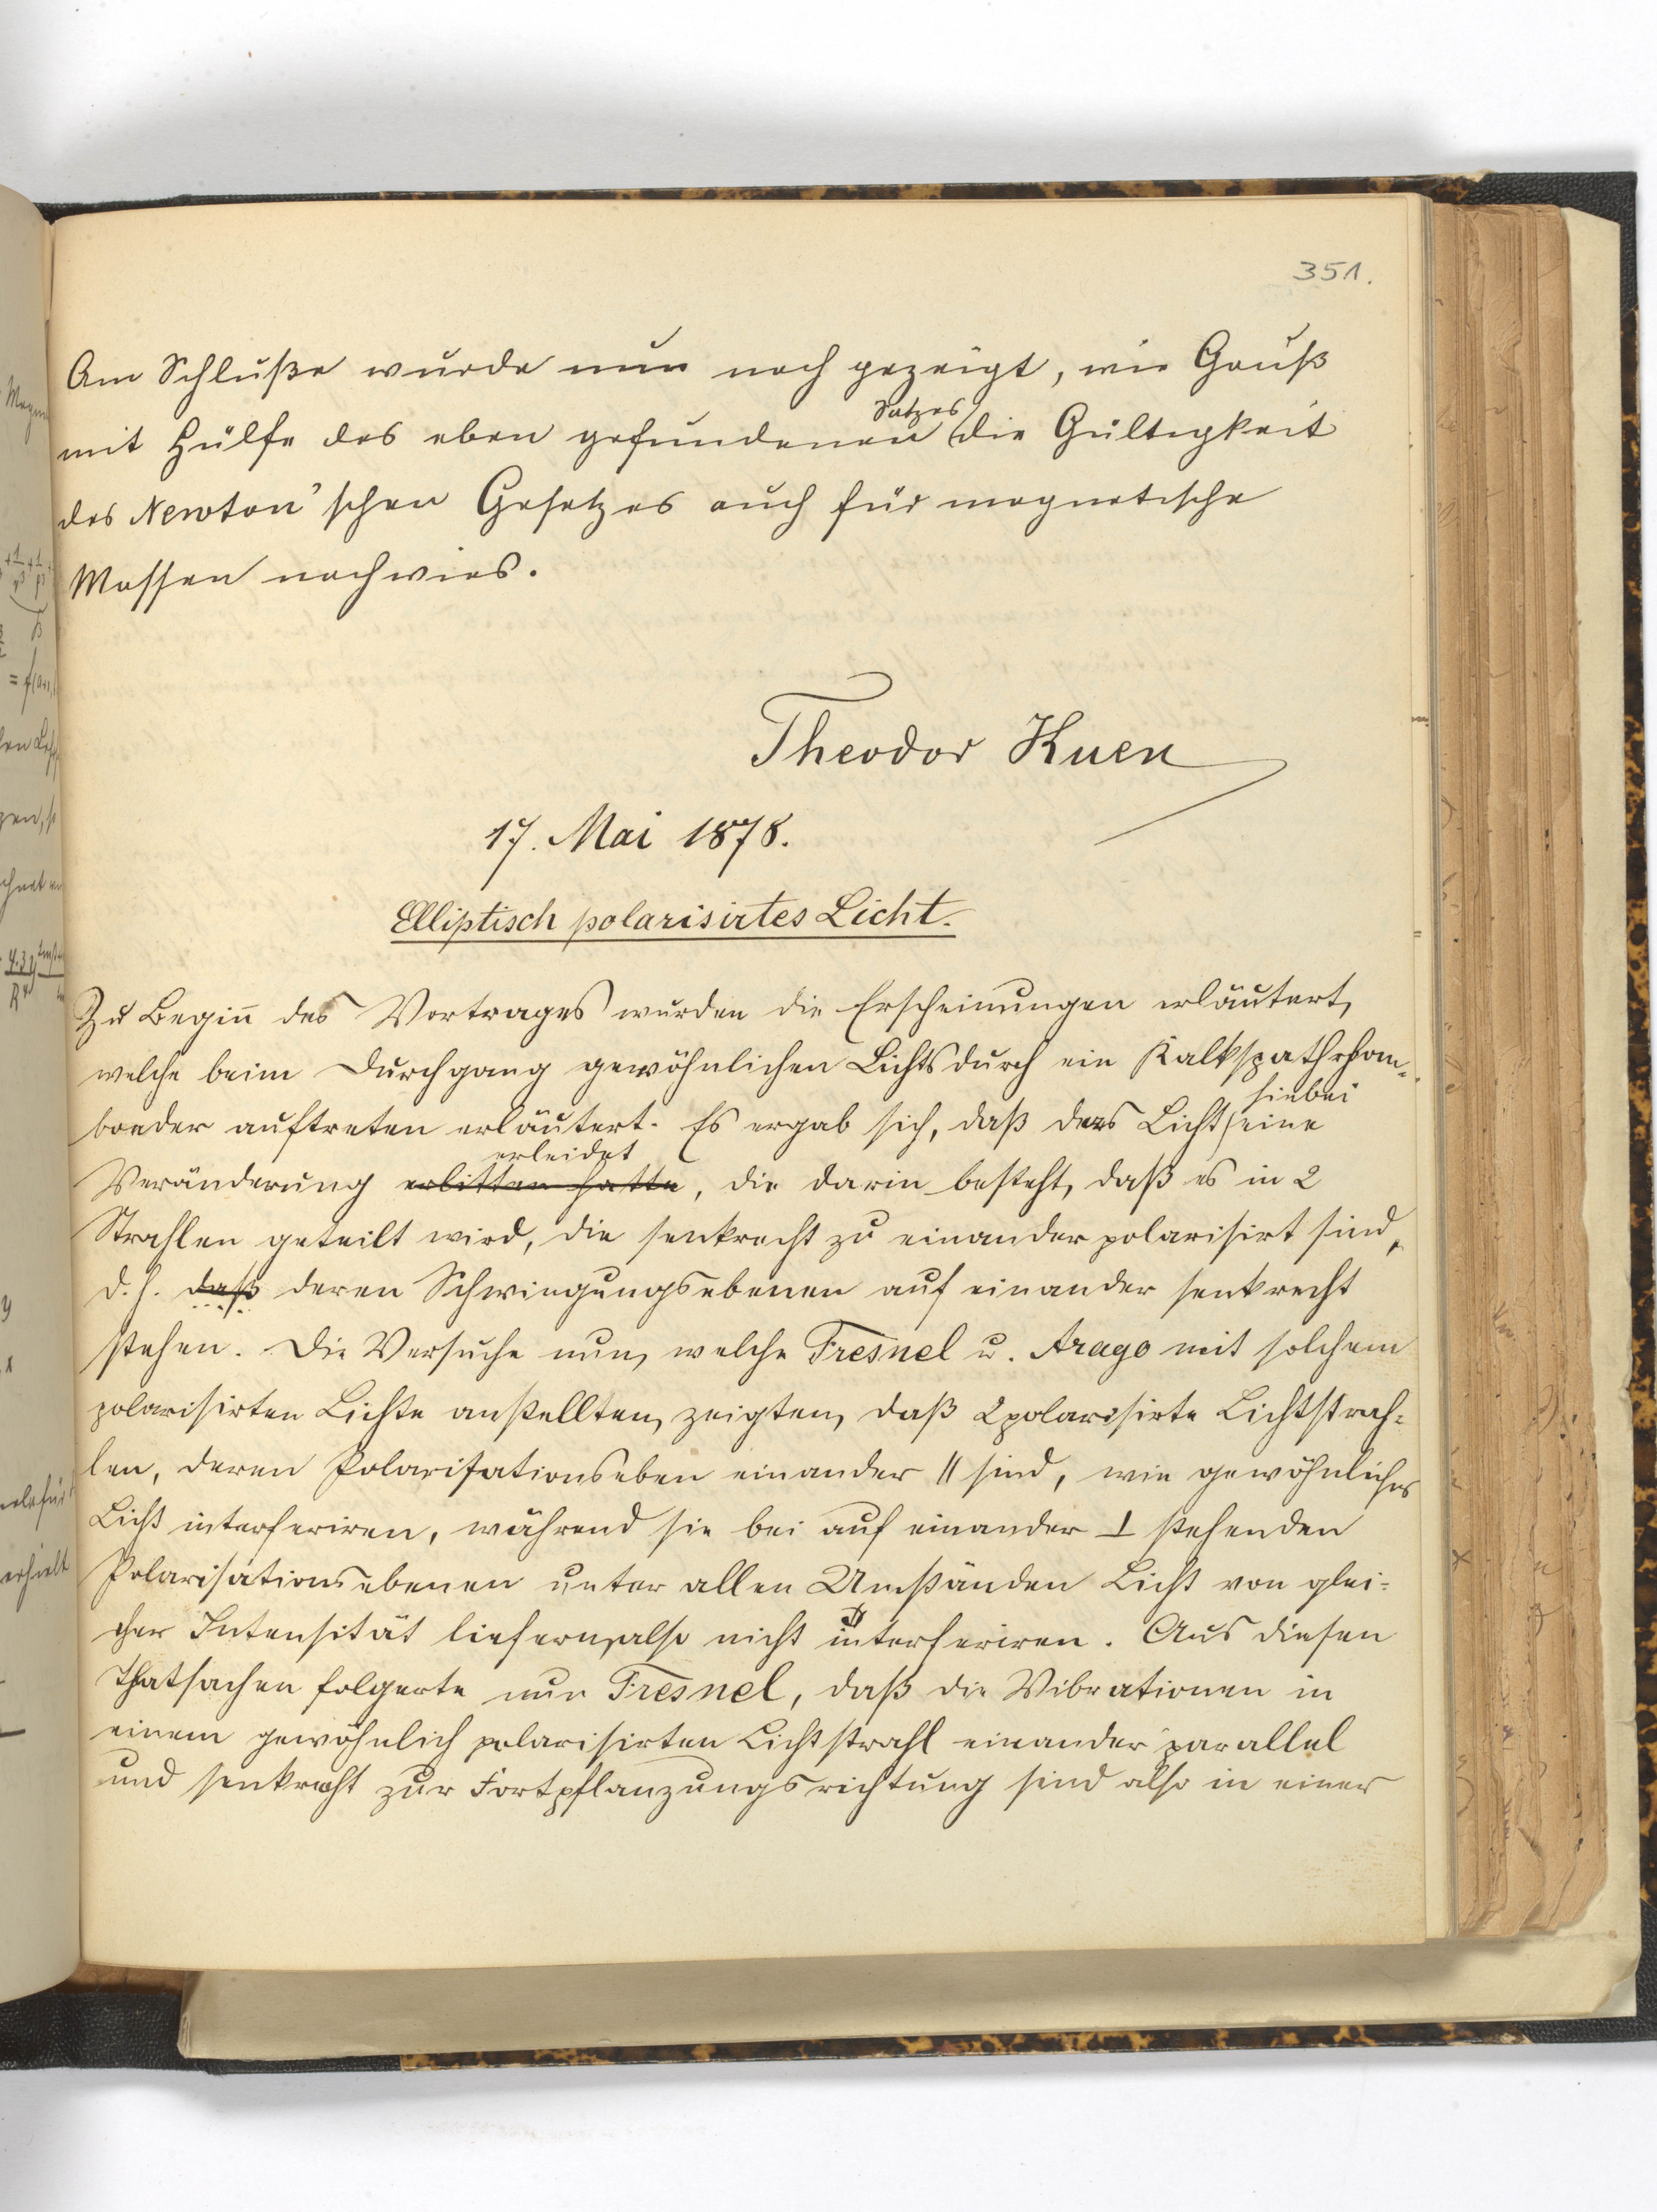 351.
Am Schluße wurde nun noch gezeigt, wie Gauß
mit Hülfe des eben gefundenen Satzes die Gültigkeit
des Newton'schen Gesetzes auch für magnetische
Massen nachwies.
Theodor Kuen
17. Mai 1878.
Elliptisch polarisirtes Licht.
Zu Begin̄ des Vortrages wurden die Erscheinungen erläutert,
welche beim Durchgang gewöhnlichen Lichts durch ein Kalkspathrhom-
boeder auftreten erläutert. Es ergab sich, daß das Licht hiebei eine
Veränderung erlitten hatte erleidet, die darin besteht, daß es in 2
Strahlen geteilt wird, die senkrecht zu einander polarisirt sind,
d. h. daß deren Schwingungsebenen auf einander senkrecht
stehen. Die Versuche nun, welche Fresnel u. Arago mit solchem
polarisirten Lichte anstellten, zeigten, daß 2 polarisirte Lichtstrah-
len, deren Polarisationseben einander || sind, wie gewöhnliches
Licht interferiren, während sie bei auf einander ⊥ stehenden
Polarisationsebenen unter allen Umständen Licht von glei-
cher Intensität liefern, also nicht interferiren. Aus diesen
Thatsachen folgerte nun Fresnel, daß die Vibrationen in
einem gewöhnlich polarisirten Lichtstrahl einander parallel
und senkrecht zur Fortpflanzungsrichtung sind also in einer